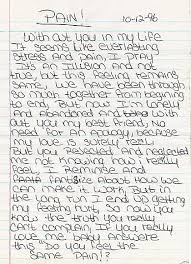 PAIN! 10-12-96
With out you in my life
It seems like everlasting
Stress and pain, I pray
It's an Illusion and not
true, but this feeling remains
Same. We have been through
so much together from begining
to End. But now I'm lonely
and abandoned and with
out you my best friend, No
need for an Apology, because
my love is surely real.
But you and neglected
me not knowing how I really
feel, I Reminise and
fantasize about how we
can make it work, But in the
long run I end up getting
my feelings hurt, So now you
know the truth you really
can't complain, If you really
love me baby answere
this "Do you feel the
Same Pain!?